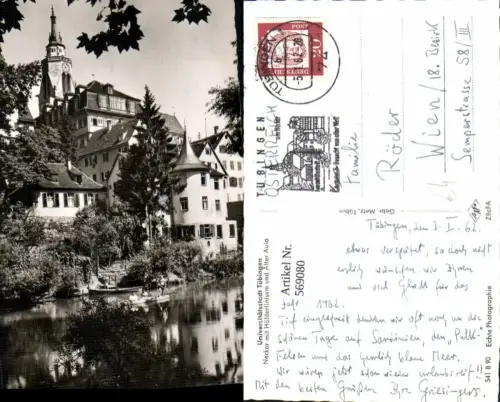 TÜBINGEN
20
DEUTSCHE
POST
TÜBINGEN
ÖSTERREICH
Familie
Röder
Wien/18. Bezirk
Semperstrasse 58 III
Gebr. Metz, Tübingen
Universitätsstadt Tübingen
Neckar mit Hölderlinturm und Alter Aula
Artikel Nr.
569080
Echte Photographie
541 B 90
Tübingen, den 3. I. 62
etwas verspätet, so doch nicht
herzlich wünschen wir Ihnen
und viel Glück für das
Jahr 1962.
Tief eingeschneit denken wir oft noch an die
schönen Tage auf Sardinien, den
Felsen und das herrlich blaue Meer.
Wir wären jetzt schon wieder urlaubsreif!!
Mit den besten Grüßen Ihre